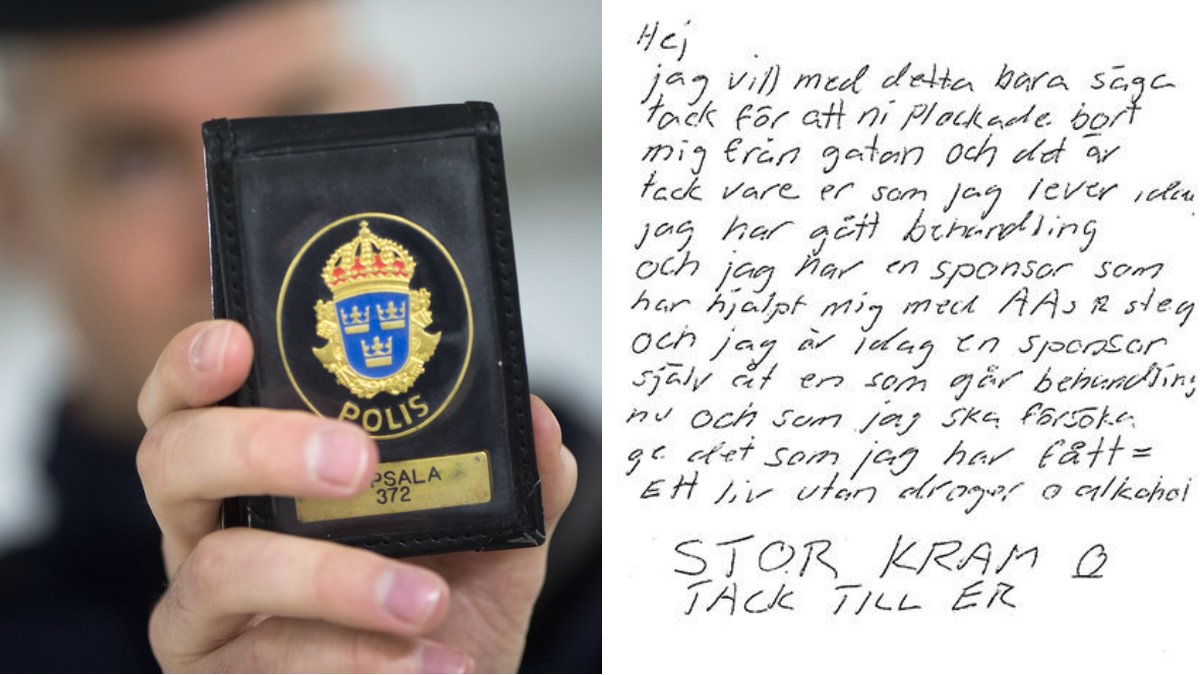 POLIS
PSALA
372
Hej
jag vill med detta bara säga
tack för att ni plockade bort
mig från gatan och det är
tack vare er som jag lever idag
jag har gått behandling
och jag har en sponsor som
har hjälpt mig med AAs 12 steg
och jag är idag en sponsor
själv åt en som går behandling
nu och som jag ska försöka
ge det som jag har fått =
Ett liv utan droger o alkohol
STOR KRAM O
TACK TILL ER